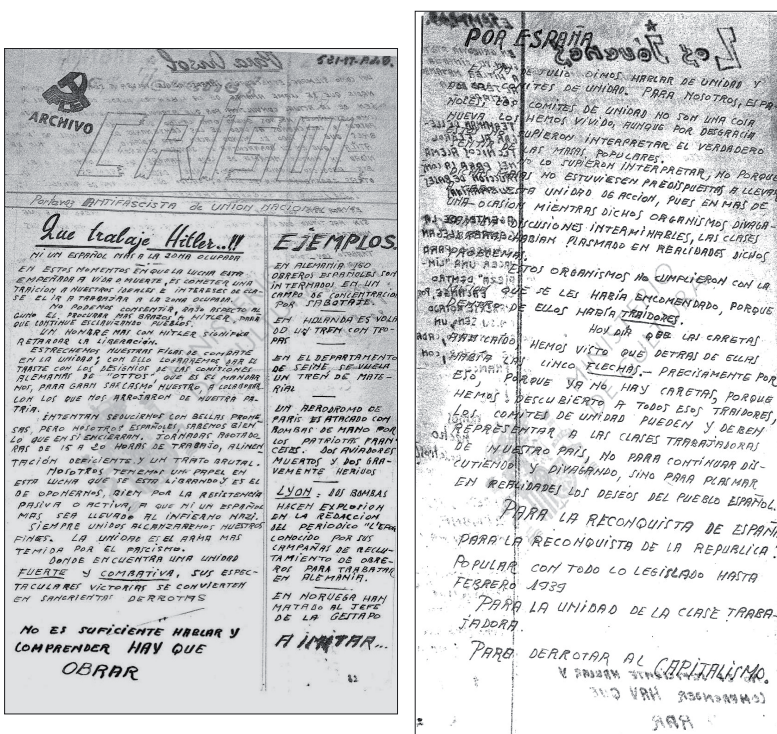 ARCHIVO
CRISOL
Portavoz ANTIFASCISTA de UNION NACIONAL
Que trabaje Hitler..!!
NI UN ESPAÑOL MAS A LA ZONA OCUPADA
EN ESTOS MOMENTOS EN QUE LA LUCHA ESTA
EMPEÑADA A VIDA O MUERTE, ES COMETER UNA
TRAICION A NUESTROS IDEALES E INTERESES DE CLA-
SE EL IR A TRABAJAR A LA ZONA OCUPADA.
NO PODEMOS CONSENTIR, BAJO ASPECTO AL
GUNO EL PROCURAR MAS BRAZOS A HITLER, PARA
QUE CONTINUE ESCLAVIZANDO PUEBLOS.
UN HOMBRE MAS CON HITLER SIGNIFICA
RETARDAR LA LIBERACIÓN.
ESTRECHEMOS NUESTRAS FILAS DE COMBATE
EN LA UNIDAD; CON ELLO LOGRAREMOS DAR EL
TRASTE CON LOS DESIGNIOS DE LAS COMITIONES
ALEMANAS DE "TOTTOS", QUE ES EL MANDAR
NOS, PARA GRAN SARCASMO NUESTRO A COLABORAR
CON LOS QUE NOS ARROJARON DE NUESTRA PA-
TRIA.
INTENTAN SEDUCIRNOS CON BELLAS PROME
SAS, PERO NOSOTROS ESPAÑOLES, SABEMOS BIEN
LO QUE EN SI ENCIERRAN, JORNADAS AGOTADO
RAS DE 15 A 20 HORAS DE TRABAJO, ALIMEN
TACIÓN DEFICIENTE Y UN TRATO BRUTAL.
NOSOTROS TENEMOS UN PAPEL EN
ESTA LUCHA QUE SE ESTA LIBRANDO Y ES EL
DE OPONERNOS, BIEN POR LA RESISTENCIA
PASIVA O ACTIVA, A QUE NI UN ESPAÑOL
MAS SEA LLEVADO AL INFIERNO NAZI.
SIEMPRE UNIDOS ALCANZAREMOS NUESTROS
FINES. LA UNIDAD ES EL ARMA MAS
TEMIDA POR EL FASCISMO.
DONDE ENCUENTRA UNA UNIDAD
FUERTE Y COMBATIVA, SUS ESPEC-
TACULARES VICTORIAS SE CONVIERTEN
EN SANGRIENTAS DERROTAS
NO ES SUFICIENTE HABLAR Y
COMPRENDER HAY QUE
OBRAR
EJEMPLOS
EN ALEMANIA 150
OBREROS ESPAÑOLES SON
INTERNADOS EN UN
CAMPO DE CONCENTRACION
POR SABOTAJE.
EN HOLANDA ES VOLA
DO UN TREN CON TRO-
PAS
EN EL DEPARTAMENTO
DE SEINE, SE VUELA
UN TREN DE MATE-
RIAL
UN AERODROMO DE
PARIS ES ATACADO CON
BOMBAS DE MANO POR
LOS PATRIOTAS FRAN
CESES. DOS AVIADORES
MUERTOS Y DOS GRA-
VEMENTE HERIDOS
LYON: DOS BOMBAS
HACEN EXPLOSION
EN LA REDACCION
DEL PERIODICO
CONOCIDO POR SUS
CAMPAÑAS DE RECLU-
TAMIENTO DE OBRE-
ROS PARA TRABAJAR
EN ALEMANIA.
EN NORUEGA HAN
MATADO AL JEFE
DE LA GESTAPO
A IMITAR...
POR ESPAÑA
DE JULIO OIMOS HABLAR DE UNIDAD Y
DE COMITES DE UNIDAD. PARA NOSOTROS, ESPA
ÑOLES, LOS COMITES DE UNIDAD NO SON UNA COSA
NUEVA LOS HEMOS VIVIDO, AUNQUE POR DESGRACIA
SUPIERON INTERPRETAR EL VERDADERO
LAS MASAS POPULARES.
NO LO SUPIERON INTERPRETAR, NO PORQUE
NO ESTUVIESEN PREDISPUESTAS A LLEVAR
UNIDAD DE ACCION, PUES EN MAS DE
UNA OCASION MIENTRAS DICHOS ORGANISMOS DIVAGA-
DISCUSIONES INTERMINABLES, LAS CLASES
HABIAN PLASMADO EN REALIDADES DICHOS
PROBLEMAS.
ESTOS ORGANISMOS NO CUMPLIERON CON LA
QUE SE LES HABÍA ENCOMENDADO, PORQUE
DENTRO DE ELLOS HABÍA TRAIDORES.
HOY DIA QUE LAS CARETAS
HEMOS VISTO QUE DETRAS DE ELLAS
HABÍA LAS CINCO FLECHAS.- PRECISAMENTE POR
ESO, PORQUE YA NO HAY CARETAS, PORQUE
HEMOS DESCUBIERTO A TODOS ESOS TRAIDORES,
LOS COMITES DE UNIDAD PUEDEN Y DEBEN
REPRESENTAR A LAS CLASES TRABAJADORAS
DE NUESTRO PAIS, NO PARA CONTINUAR DIS-
CUTIENDO Y DIVAGANDO, SINO PARA PLASMAR
EN REALIDADES LOS DESEOS DEL PUEBLO ESPAÑOL.
PARA LA RECONQUISTA DE ESPAÑA
PARA LA RECONQUISTA DE LA REPUBLICA
POPULAR CON TODO LO LEGISLADO HASTA
FEBRERO 1939
PARA LA UNIDAD DE LA CLASE TRABA-
JADORA.
PARA DERROTAR AL CAPITALISMO.